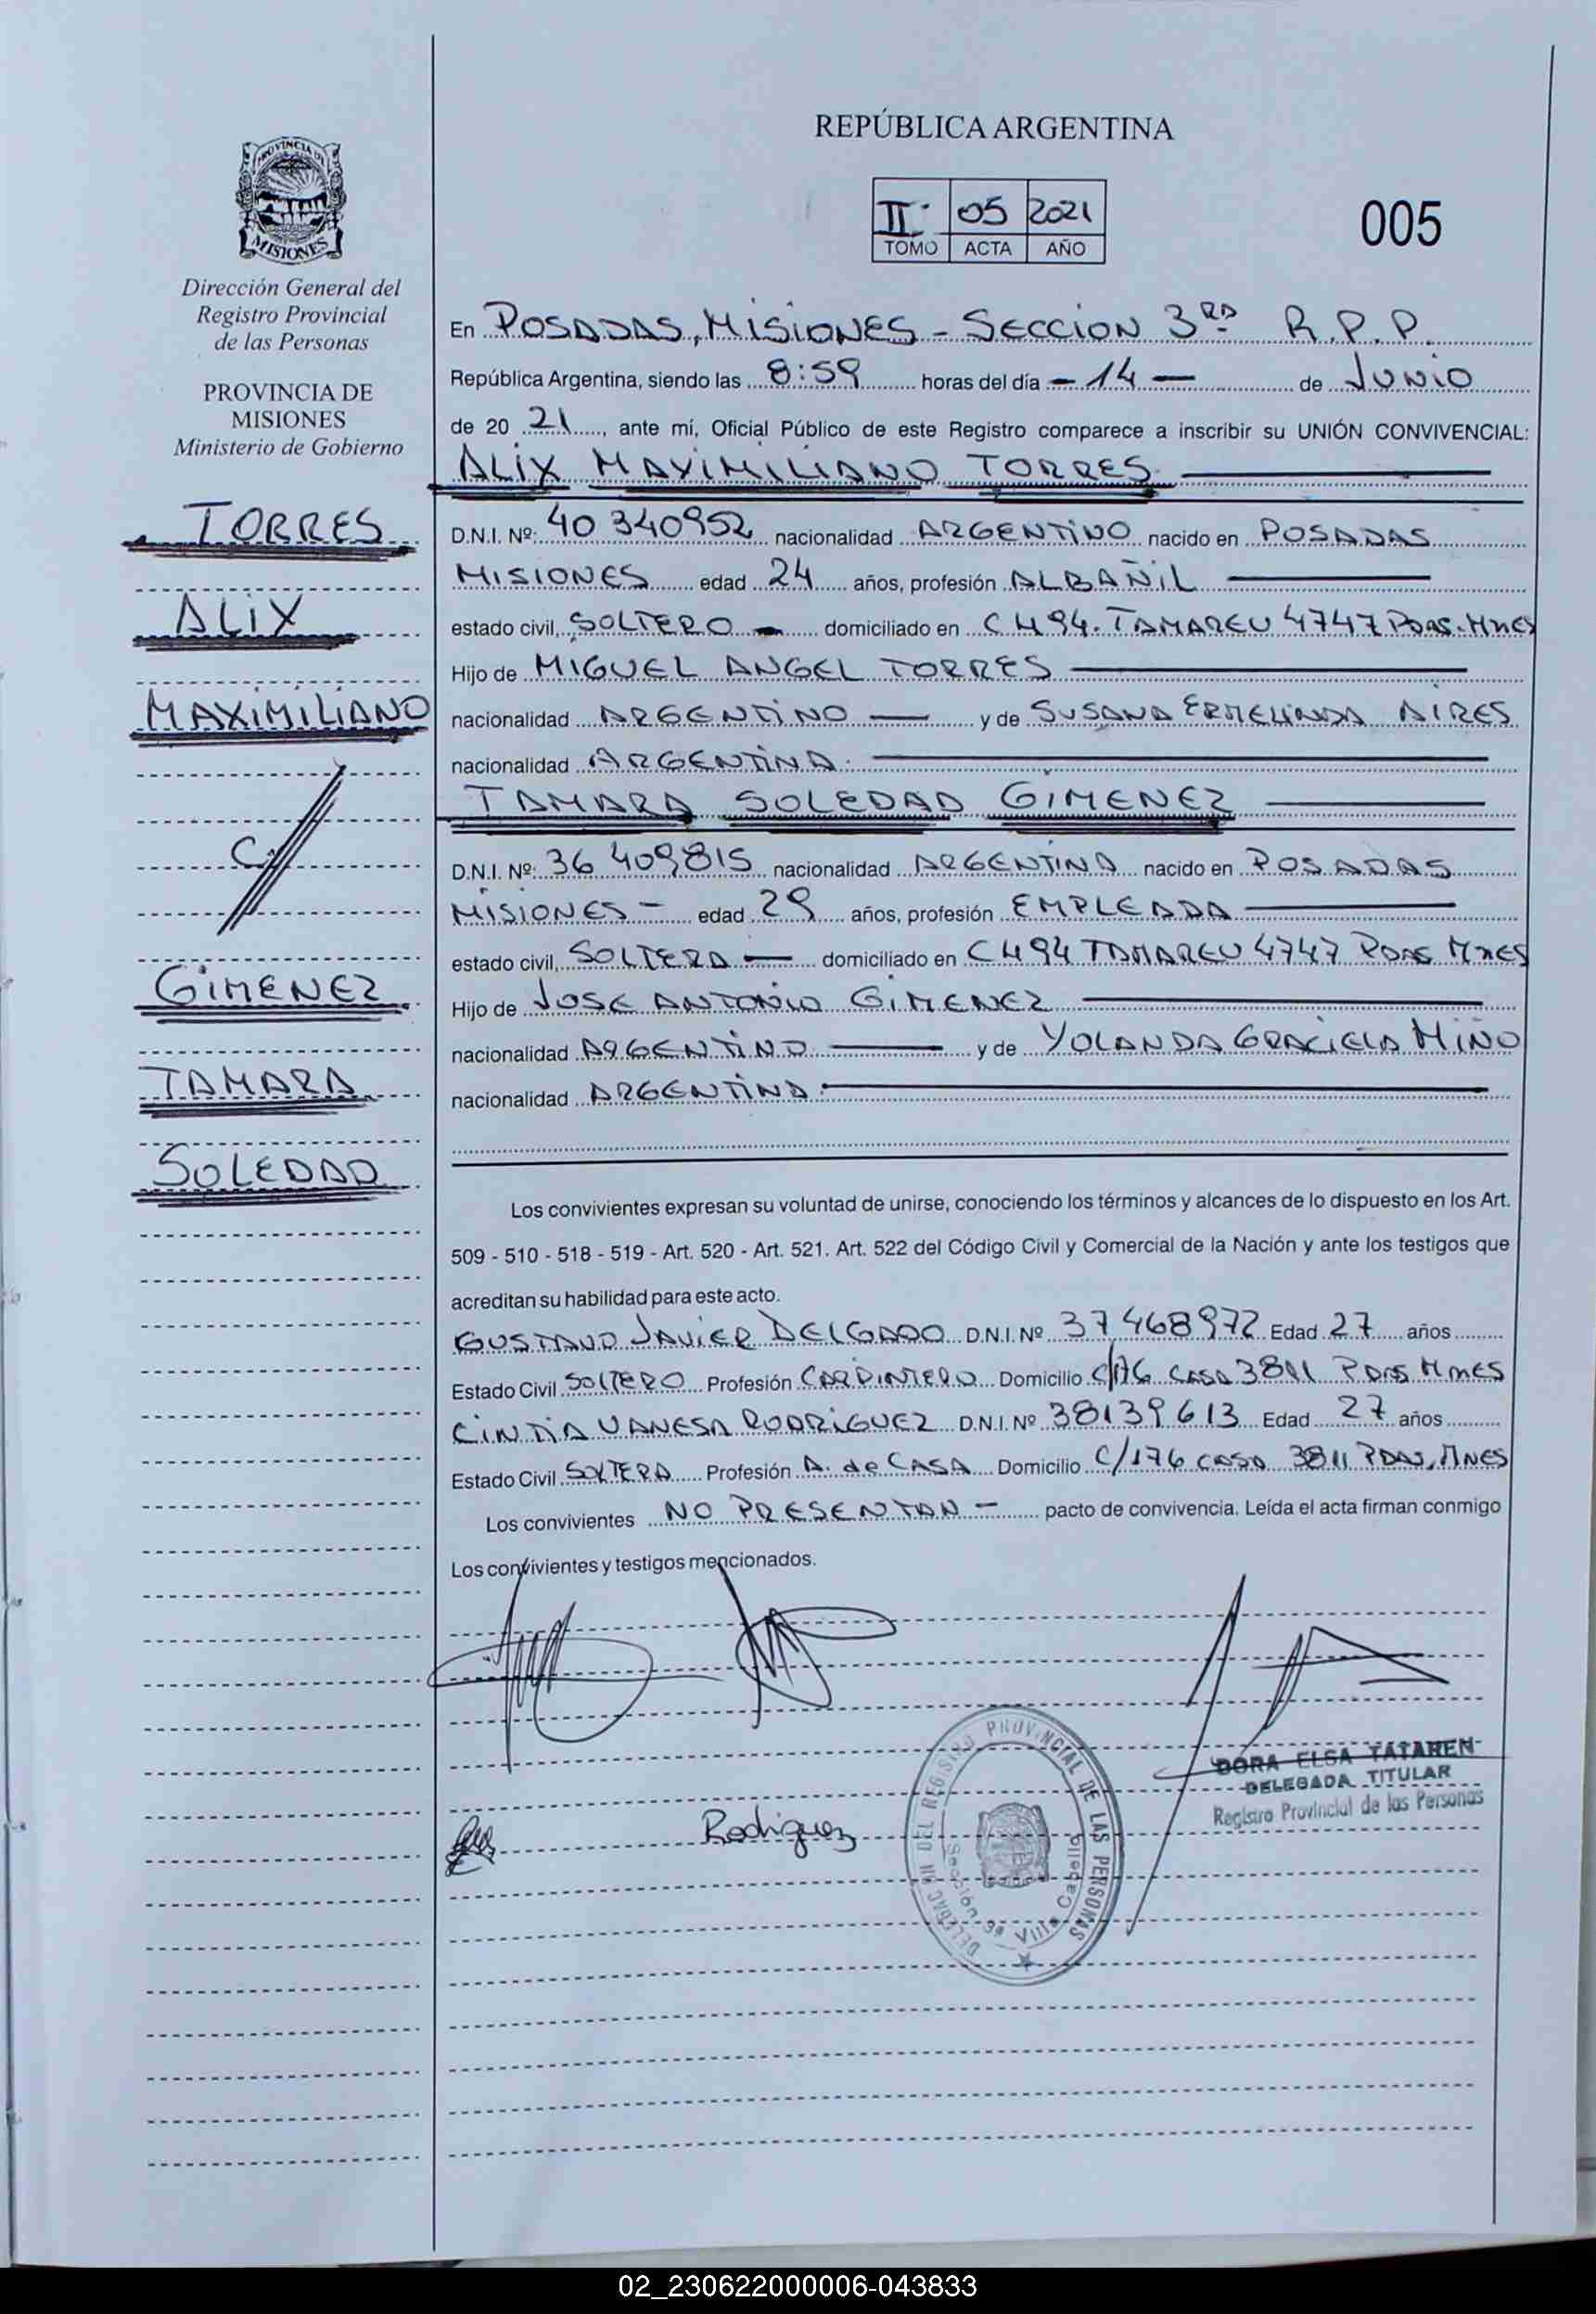 REPÚBLICA ARGENTINA
PROVINCIA DE
MISIONES
II 05 2021
TOMO ACTA AÑO
005
Dirección General del
Registro Provincial
de las Personas
PROVINCIA DE
MISIONES
Ministerio de Gobierno
TORRES
ALIX
MAXIMILIANO
C/
GIMENEZ
TAMARA
SOLEDAD
En POSADAS, MISIONES - SECCION 3RA R.P.P.
República Argentina, siendo las 8:59 horas del día - 14 - de JUNIO
de 20 21, ante mí, Oficial Público de este Registro comparece a inscribir su UNIÓN CONVIVENCIAL:
ALIX MAXIMILIANO TORRES
D.N.I. Nº: 40 340952 nacionalidad ARGENTINO nacido en POSADAS
MISIONES edad 24 años, profesión ALBAÑIL
estado civil, SOLTERO - domiciliado en CH 94. TAMAREU 4747 PDAS. MNES
Hijo de MIGUEL ANGEL TORRES
nacionalidad ARGENTINO y de SUSANA ERMELINDA AIRES
nacionalidad ARGENTINA.
TAMARA SOLEDAD GIMENEZ
D.N.I. Nº: 36 409815 nacionalidad ARGENTINA nacido en POSADAS
MISIONES - edad 29 años, profesión EMPLEADA
estado civil, SOLTERA - domiciliado en CH 94 TAMAREU 4747 PDAS MNES
Hijo de JOSE ANTONIO GIMENEZ
nacionalidad ARGENTINO y de YOLANDA GRACIELA MIÑO
nacionalidad ARGENTINA.
Los convivientes expresan su voluntad de unirse, conociendo los términos y alcances de lo dispuesto en los Art.
509 - 510 - 518 - 519 - Art. 520 - Art. 521. Art. 522 del Código Civil y Comercial de la Nación y ante los testigos que
acreditan su habilidad para este acto.
GUSTAVO JAVIER DELGADO D.N.I. Nº 37 468972 Edad 27 años
Estado Civil SOLTERO Profesión CARPINTERO Domicilio C/176 CASA 3811 PDAS MNES
CINTIA VANESA RODRIGUEZ D.N.I. Nº 38139613 Edad 27 años
Estado Civil SOLTERA Profesión A. de CASA Domicilio C/176 CASA 3811 PDAS, MNES
Los convivientes NO PRESENTAN - pacto de convivencia. Leída el acta firman conmigo
Los convivientes y testigos mencionados.
DORA ELSA TATAREN
DELEGADA TITULAR
Registro Provincial de las Personas
Rodriguez
DELEGACION DEL REGISTRO PROVINCIAL DE LAS PERSONAS
Sección 3ª Villa Cabello
02_230622000006-043833